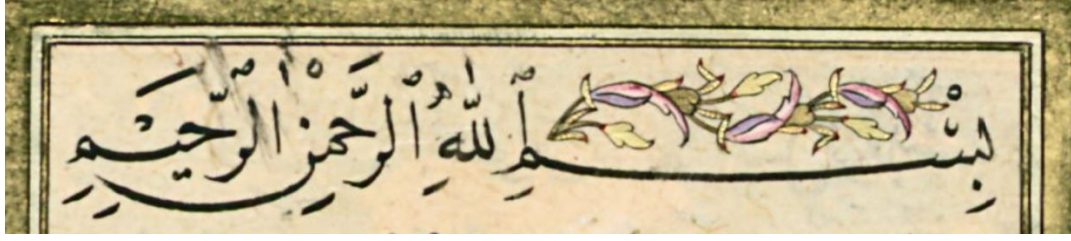 بِسْمِ ٱللّٰهِ ٱلرَّحْمٰنِ ٱلرَّحٖيمِ